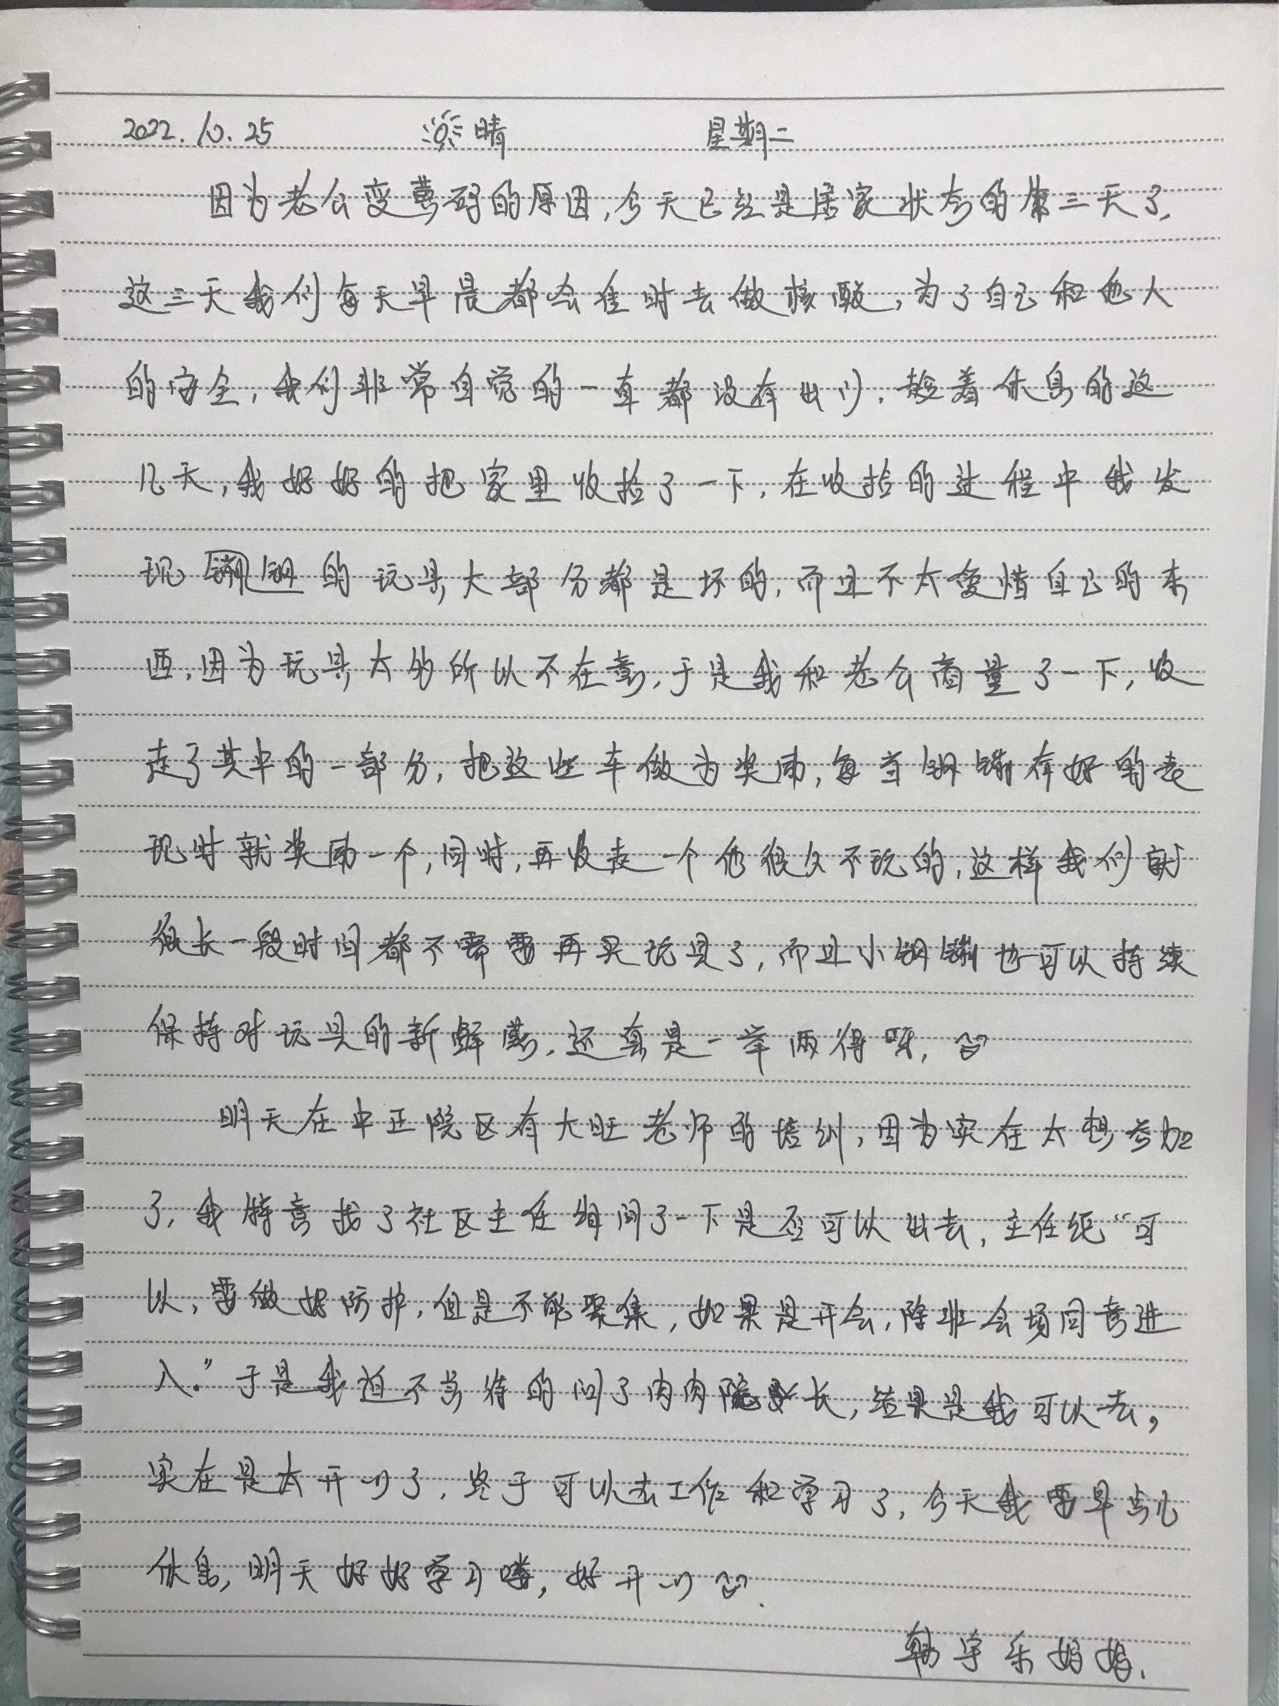 2022.10.25 晴 星期二
因为老公变黄码的原因,今天已经是居家状态的第三天了,
这三天我们每天早晨都会准时去做核酸,为了自己和他人
的安全,我们非常自觉的一直都没有出门,趁着休息的这
几天,我好好的把家里收拾了一下,在收拾的过程中我发
现 的玩具大部分都是坏的,而且不太爱惜自己的东
西,因为玩具太多所以不在意,于是我和老公商量了一下,收
走了其中的一部分,把这些车做为奖励,每当 有好的表
现时就奖励一个,同时,再收走一个他很久不玩的,这样我们就
很长一段时间都不需要再买玩具了,而且小 也可以持续
保持对玩具的新鲜感,还真是一举两得呀,
明天在中正院区有大旺老师的培训,因为实在太想参加
了,我特意找了社区主任 问了一下是否可以出去,主任说“可
以,要做好防护,但是不能聚集,如果是开会,除非会场同意进
入。”于是我迫不及待的问了肉肉院长,结果是我可以去,
实在是太开心了,终于可以去工作和学习了,今天我要早点儿
休息,明天好好学习喽,好开心
韩宇乐妈妈.